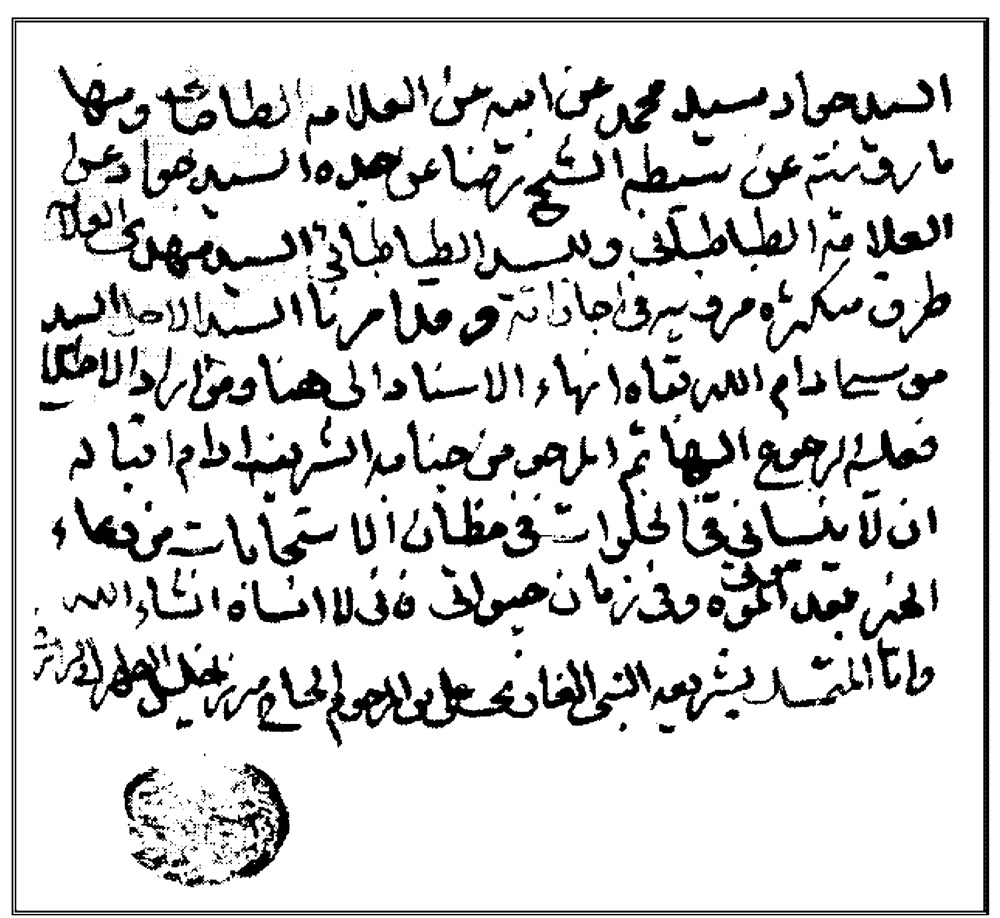 السيد جواد سيد محمد عن ابيه عن العلامه الطباطبائي ومنها
ما رويته عن سبطه الشيخ رضا عن جده السيد جواد عن
العلامة الطباطبائي وللسيد الطباطبائي السيد مهدي العلامة
طرق متكثره مرويه في اجازاته وقد امرنا السيد الاجل السيد
موسى ادام الله بقاه انهاء الاسناد الى هنا ومن اراد الاطلاع
فعليه الرجوع اليها ثم المرجو من جنابه الشريف ادام اقباله
ان لا ينساني في الخلوات في مظان الاستجابات من دعاء
الخير بعد الموت وفي زمان حيواتي فاني لا انساه انشاء الله
وانا المتمسك بشريعه النبي العبد نجل علي بن المرحوم الحاج ميرزا خليل الطهراني